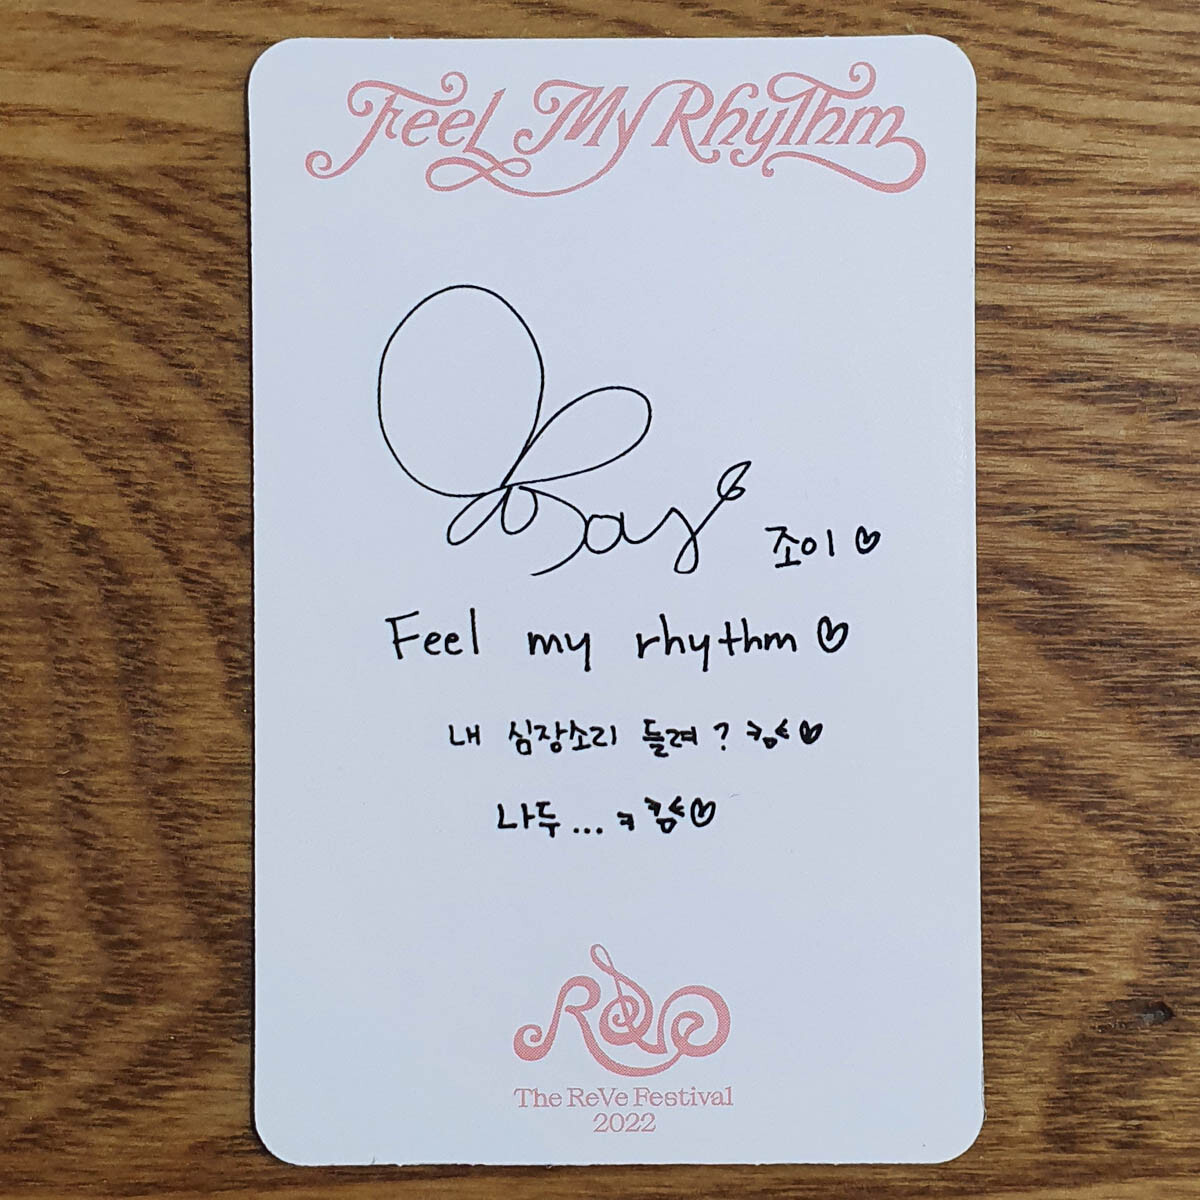 Feel My Rhythm
조이♡
Feel my rhythm♡
내 심장소리 들려?
나두...
ReVe
The ReVe Festival
2022